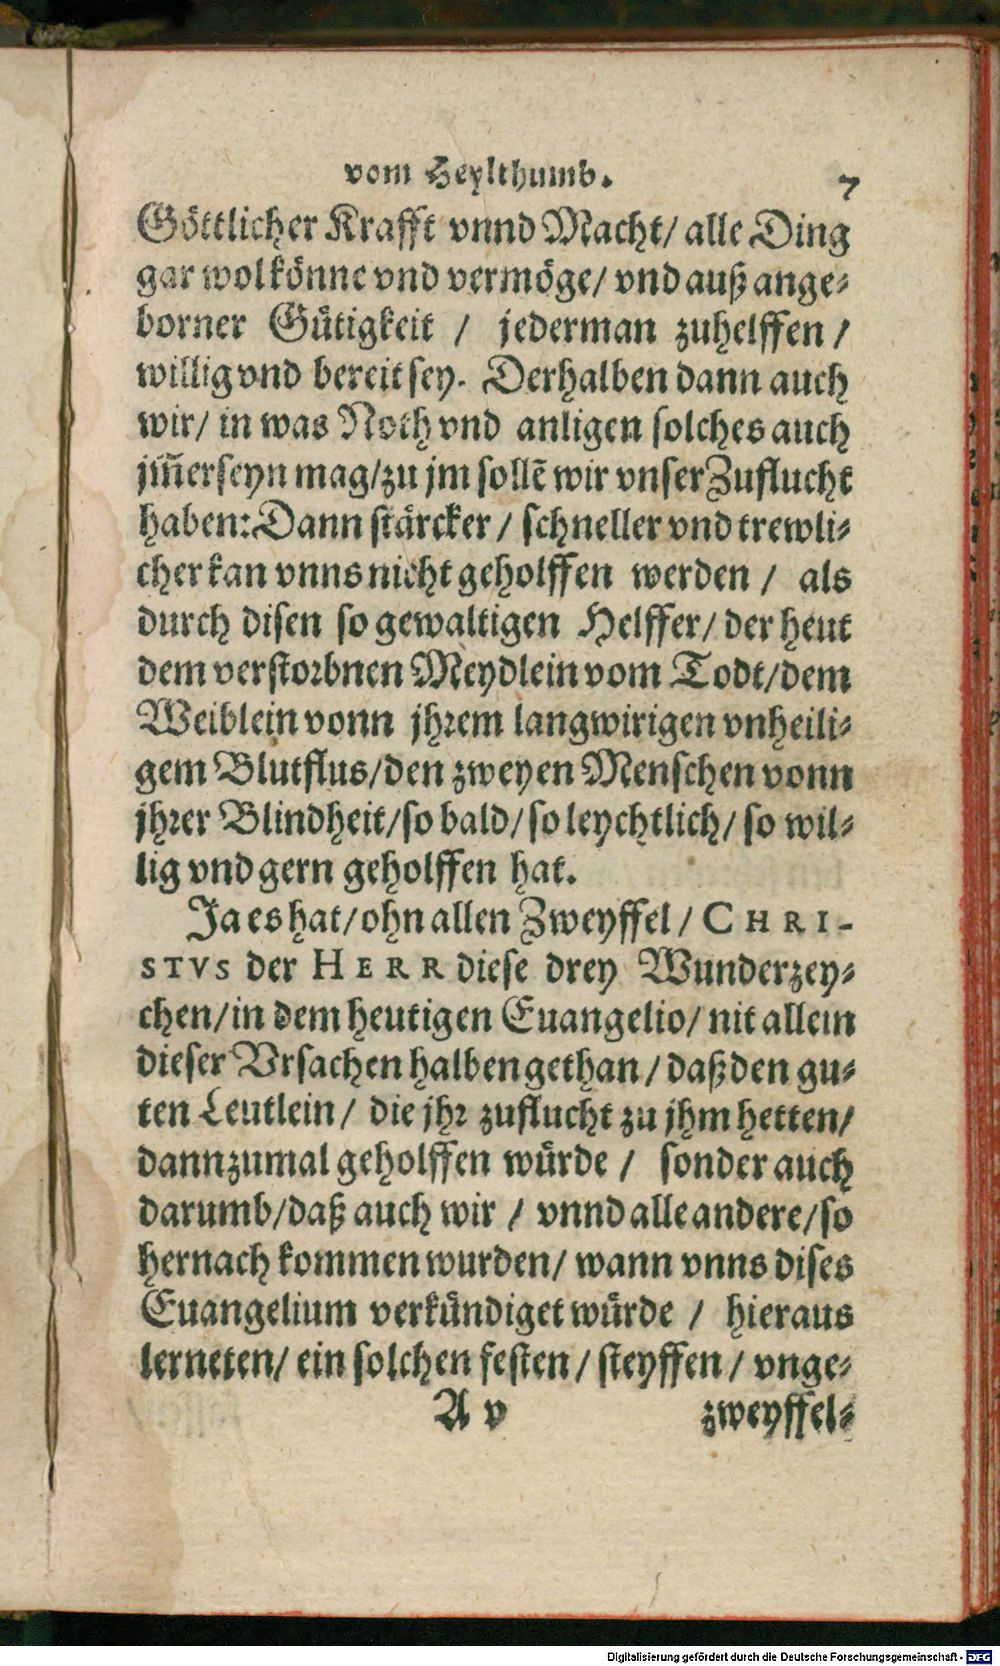 vom Heylthumb. 7
Göttlicher Krafft vnnd Macht/ alle Ding
gar wol könne vnd vermöge/ vnd auß ange-
borner Gütigkeit / jederman zuhelffen /
willig vnd bereit sey. Derhalben dann auch
wir/ in was Noth vnd anligen solches auch
jm̃er seyn mag/ zu jm sollē wir vnser Zuflucht
haben: Dann stärcker / schneller vnd trewli-
cher kan vnns nicht geholffen werden / als
durch disen so gewaltigen Helffer/ der heut
dem verstorbnen Meydlein vom Todt/ dem
Weiblein vonn jhrem langwirigen vnheili-
gem Blutflus/ den zweyen Menschen vonn
jhrer Blindheit/ so bald/ so leychtlich/ so wil-
lig vnd gern geholffen hat.
Ja es hat/ ohn allen Zweyffel/ CHRI-
STVS der HERR diese drey Wunderzey-
chen/ in dem heutigen Euangelio/ nit allein
dieser Vrsachen halben gethan/ daß den gu-
ten Leutlein/ die jhr zuflucht zu jhm hetten/
dannzumal geholffen würde / sonder auch
darumb/ daß auch wir / vnnd alle andere/ so
hernach kommen wurden/ wann vnns dises
Euangelium verkündiget würde / hieraus
lerneten/ ein solchen festen/ steyffen/ vnge-
A v zweyffel-
Digitalisierung gefördert durch die Deutsche Forschungsgemeinschaft - DFG